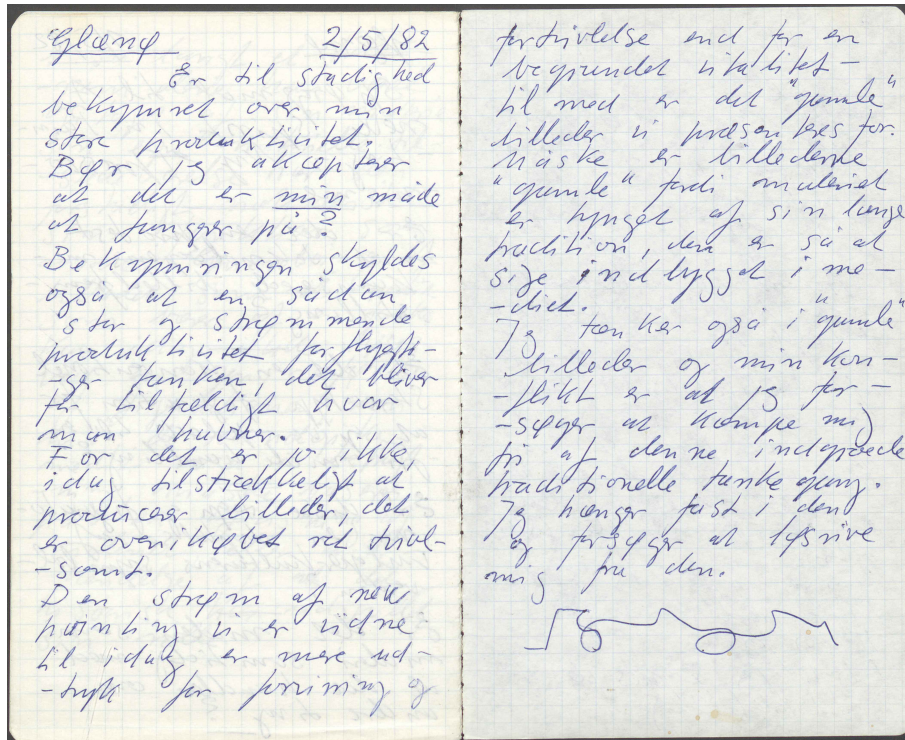 Glænø 2/5/82
Er til stadighed
bekymret over min
store produktivitet.
Bør jeg akceptere
at det er min måde
at fungere på?
Bekymringen skyldes
også at en sådan
stor og strømmende
produktivitet forflygti-
-ger tanken, det bliver
for tilfældigt hvor
man havner.
For det er jo ikke,
idag tilstrækkeligt at
producere billeder, det
er ovenikøbet ret tvivl-
-somt.
Den strøm af new
painting vi er vidne
til idag er mere ud-
-tryk for forvirring og
fortvivlelse end for en
begrundet vitalitet -
til med er det "gamle"
billeder vi præsenteres for.
Måske er billederne
"gamle" fordi materialet
er tynget af sin lange
tradition, den er så at
sige indbygget i me-
-diet.
Jeg tænker også i "gamle"
billeder og min kon-
-flikt er at jeg for-
-søger at kæmpe mig
fri af denne indgroede
traditionelle tankegang.
Jeg hænger fast i den
og forsøger at løsrive
mig fra den.